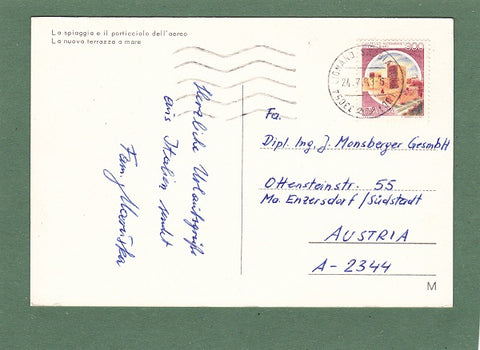 La spiaggia e il porticciolo dell'aereo
La nuova terrazza a mare
Herzliche Urlaubsgrüße
aus Italien sendet
Fam.
300
Fa.
Dipl. Ing. J. Monsberger GesmbH
Ottensteinstr. 55
Ma. Enzersdorf/Südstadt
AUSTRIA
A-2344
M